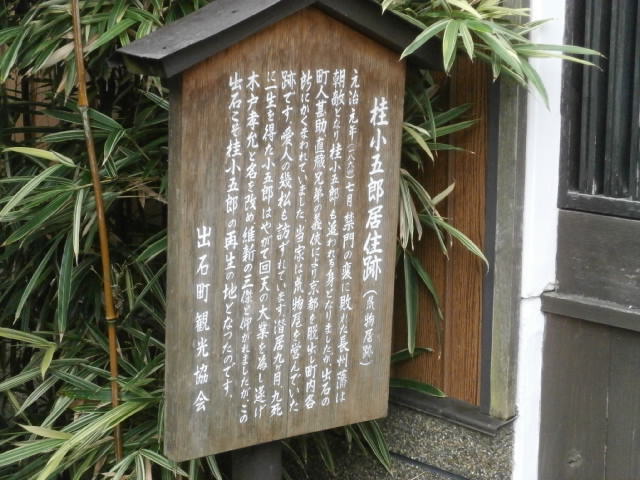 桂小五郎居住跡（荒物屋跡）
元治元年（一八六四）七月 禁門の変に敗れた長州藩は
朝敵となり桂小五郎も追われる身となりましたが出石の
町人甚助直蔵兄弟の義侠により京都を脱出し町内各
所にかくまわれていました 当家は荒物屋を営んでいた
跡です。愛人の幾松も訪ずれています。潜居九ヶ月、九死
に一生を得た小五郎はやがて回天の大業を為し遂げ
木戸孝允と名を改め維新の三傑と仰がれましたが、この
出石こそ桂小五郎の再生の地となったのです。
出石町観光協会